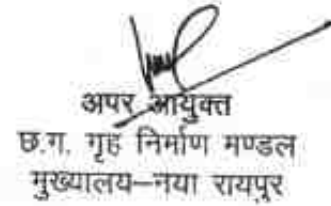 अपर आयुक्त
छ.ग. गृह निर्माण मण्डल
मुख्यालय–नया रायपुर